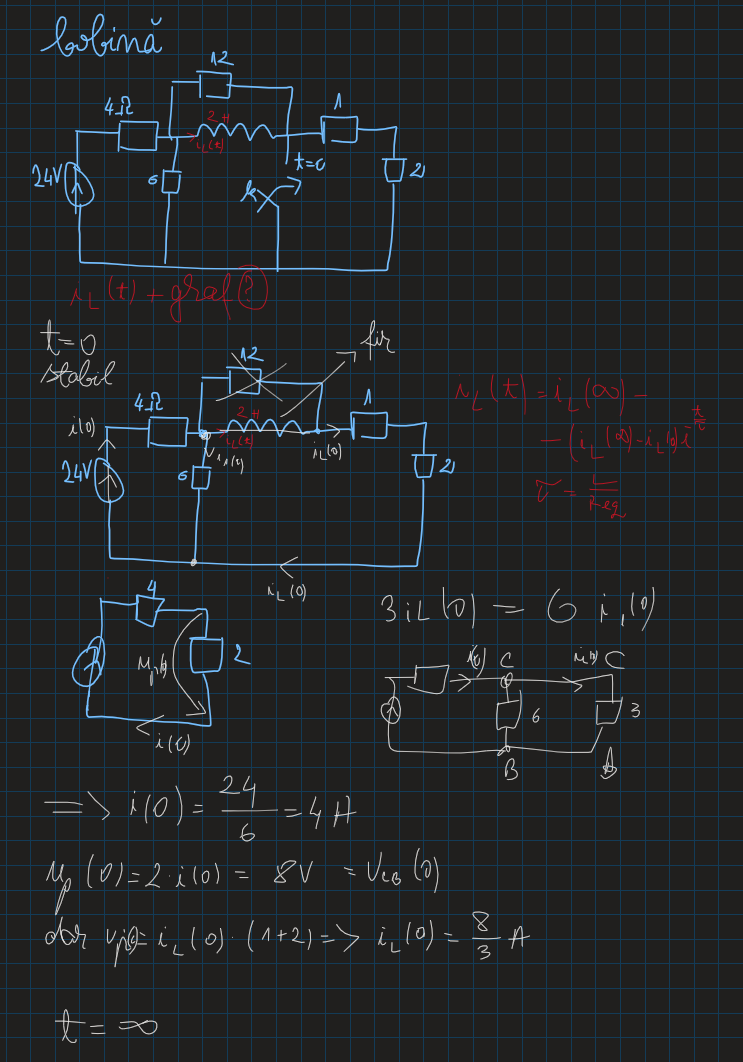 bobină
12
4Ω
2H
1
i_L(t)
t=0
24V
6
k
2
i_L(t) + graf ?
t=0
stabil
12
fir
4Ω
2H
1
i(0)
i_L(t)
i_L(0)
i_1(0)
24V
6
2
i_L(0)
i_L(t) = i_L(∞) -
- (i_L(∞) - i_L(0)) e^{-t/τ}
τ = L/Req
4
u_p(0)
2
i(0)
3 i_L(0) = 6 i_1(0)
i(0) C i_L(0) C
6 3
B A
=> i(0) = 24/6 = 4A
u_p(0) = 2·i(0) = 8V = V_CB(0)
dar v_p(0) = i_L(0)·(1+2) => i_L(0) = 8/3 A
t = ∞